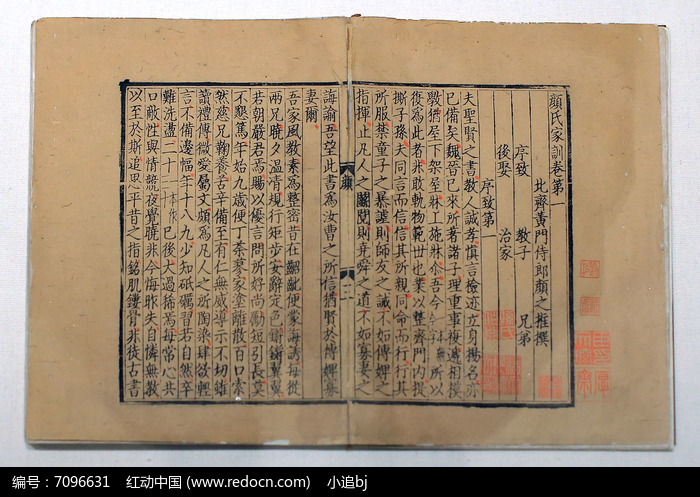 顏氏家訓卷第一
北齊黃門侍郎顏之推撰
序致 教子 兄弟
後娶 治家
序致第一
夫聖賢之書教人誠孝慎言檢迹立身揚名亦
已備矣魏晉已來所著諸子理重事複遞相模
斆猶屋下架屋牀上施牀尒吾今 所以
復為此者非敢軌物範世也業以整齊門內提
撕子孫夫同言而信信其所親同命而行行其
所服禁童子之暴謔則師友之誡不如傅婢之
指揮止凡人之鬬䦧則堯舜之道不如寡妻之
誨諭吾望此書為汝曹之所信猶賢於傅婢寡
妻爾
吾家風教素為整密昔在齠齔便蒙誨誘每從
兩兄曉夕溫凊規行矩步安辭定色鏘鏘翼翼
若朝嚴君焉賜以優言問所好尚勵短引長莫
不懇篤年始九歲便丁荼蓼家塗離散百口索
然慈兄鞠養苦辛備至有仁無威導示不切雖
讀禮傳微愛屬文頗為凡人之所陶染肆欲輕
言不備邊幅年十八九少知砥礪習若自然卒
難洗盪二十 已後大過稀焉每常心共
口敵性與情競夜覺曉非今悔昨失自憐無教
以至於斯追思平昔之指銘肌鏤骨非徒古書
顏
二
编号：7096631 红动中国 (www.redocn.com) 小追bj